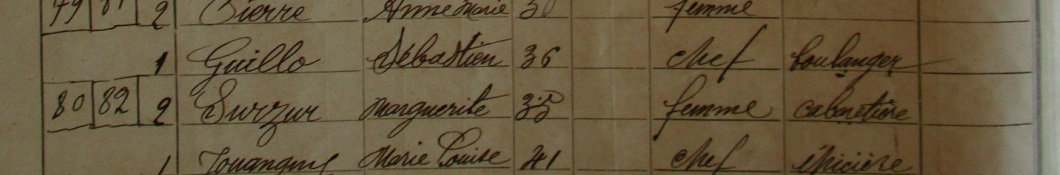 79 81 2 Pierre Anne Marie femme
1 Guillo Sébastien 36 chef boulanger
80 82 2 Surzur Marguerite femme cabaretière
1 Marie Louise 41 chef épicière